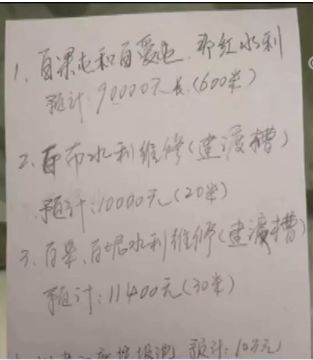 1、百果屯和百爱屯、那红水利
预计:90000元长(600米)
2、百布水利维修(建渡槽)
预计:10000元(20米)
3、百果、百坭水利维修(建渡槽)
预计:11400元(30米)
垃圾池 预计:10万元